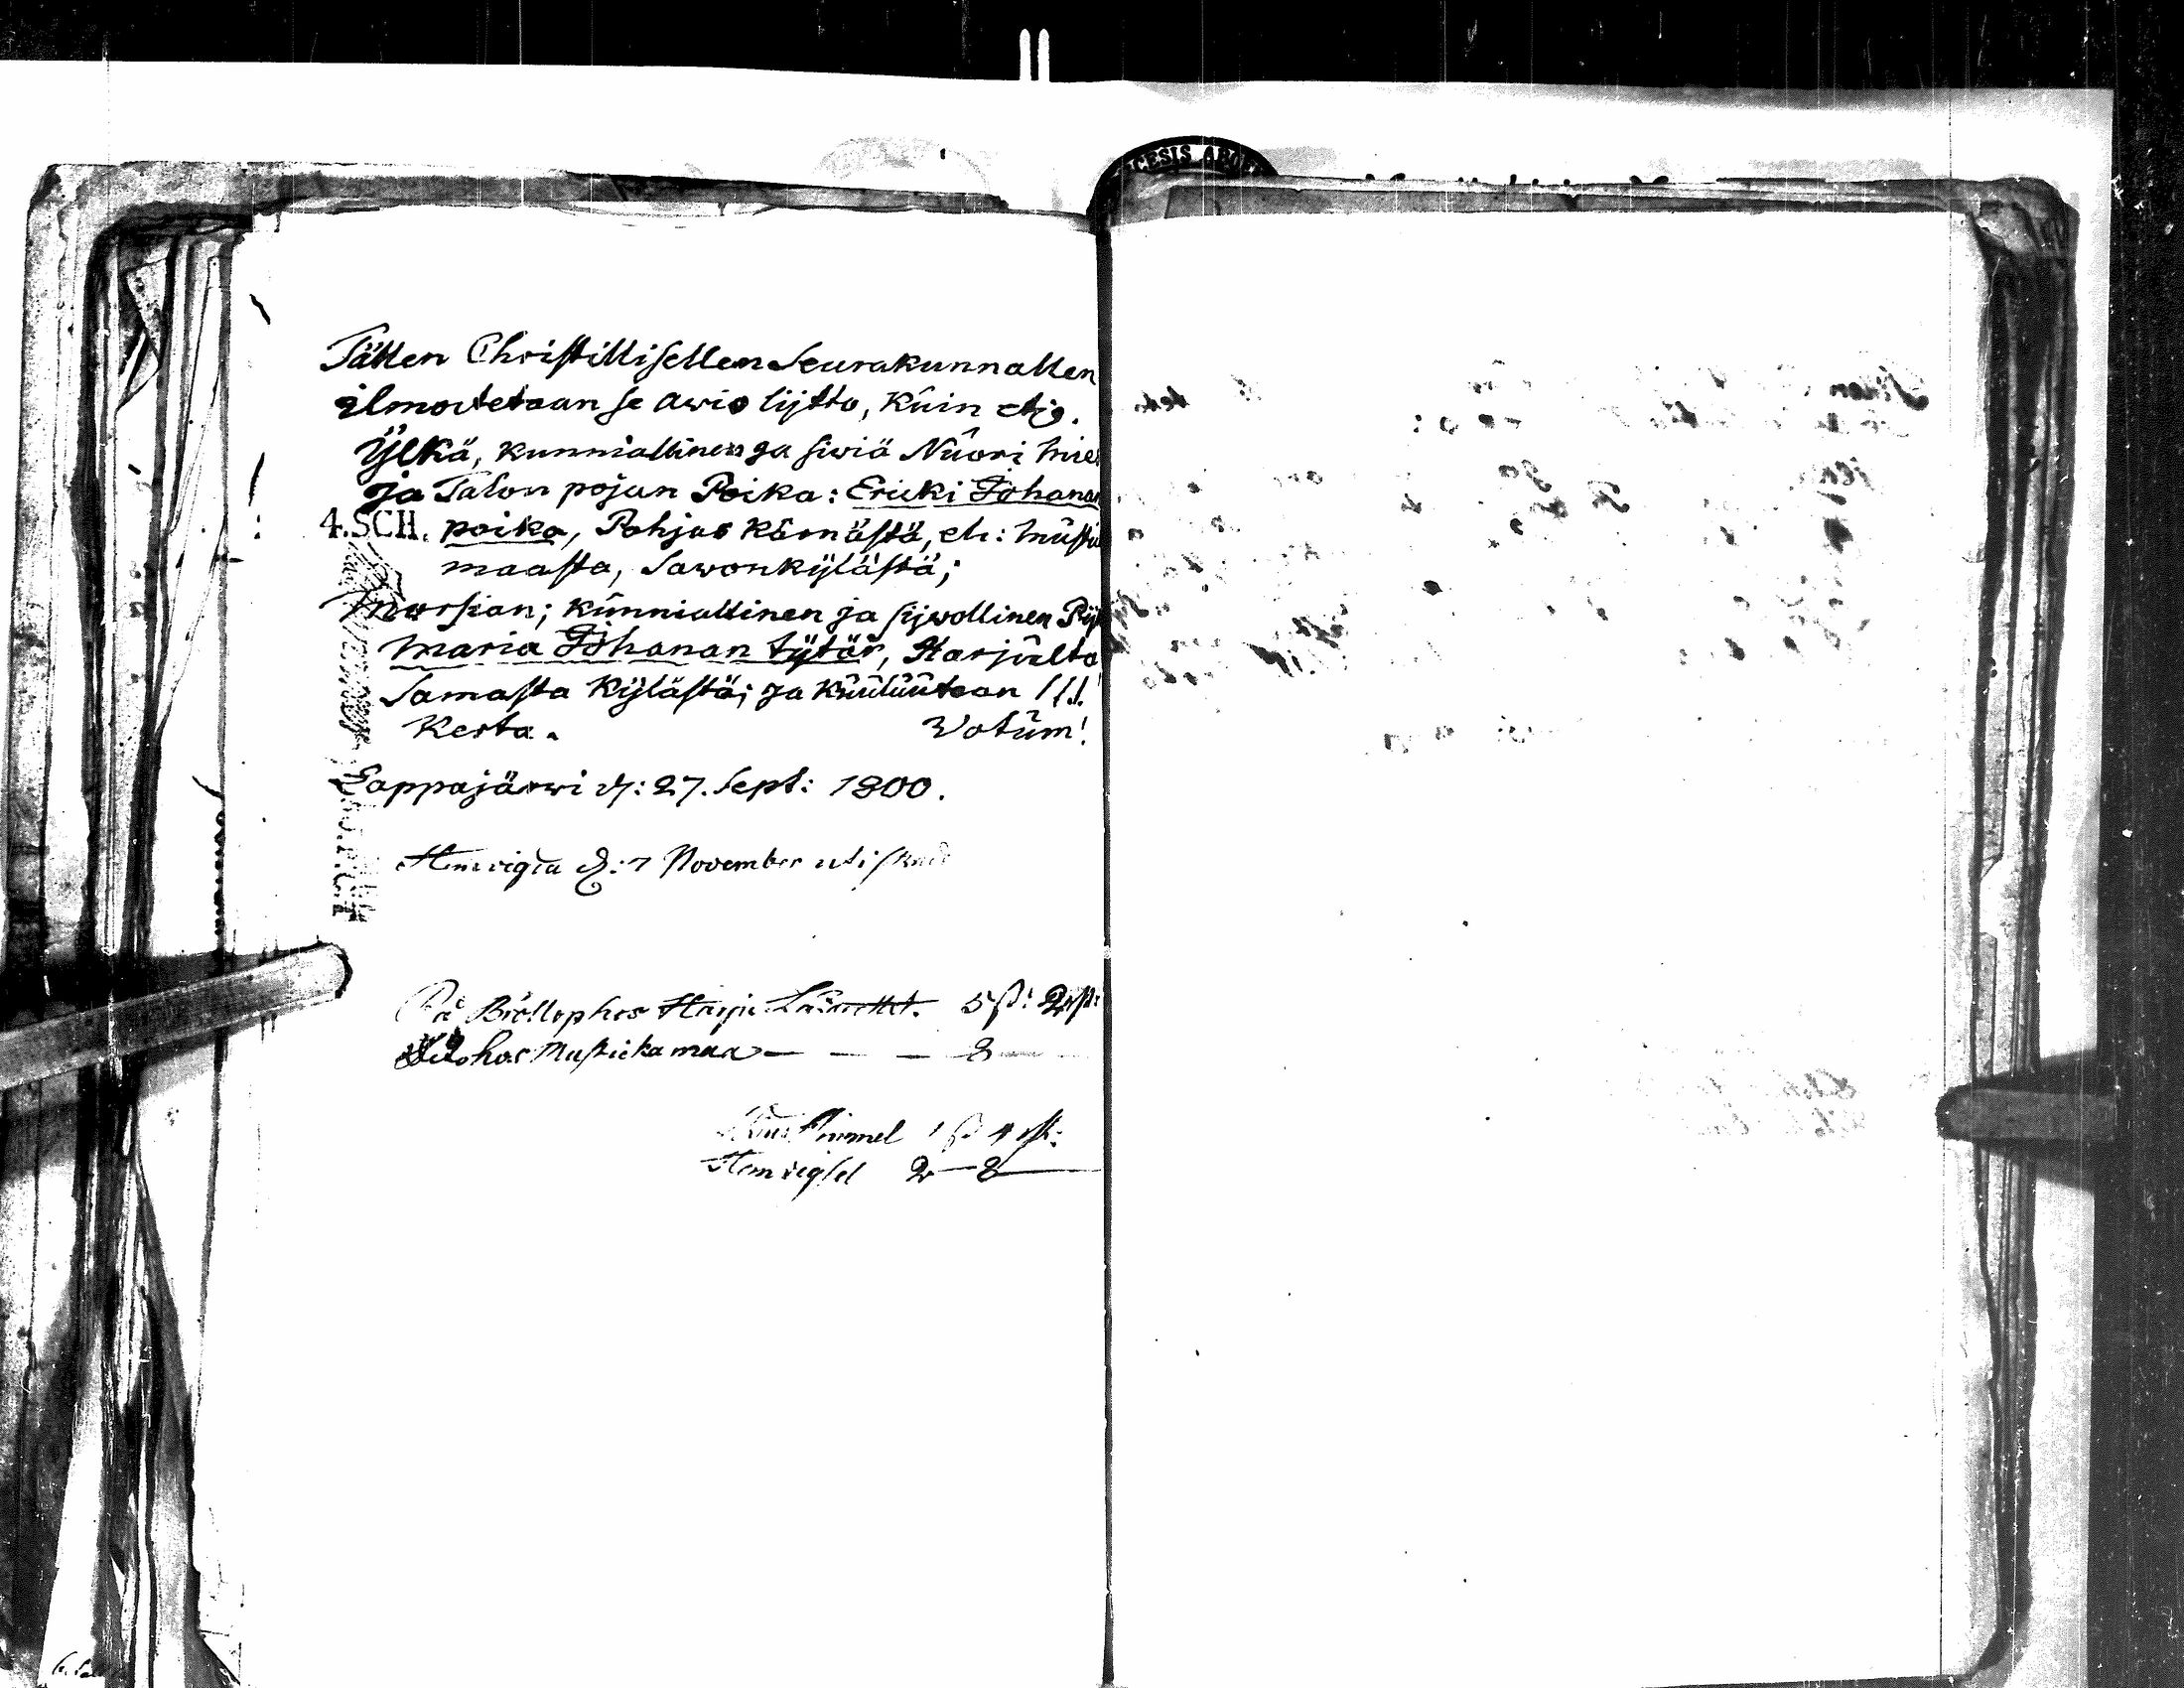 CESIS ABO
Tällen Christillisellen Seurakunnallen
ilmoitetaan se awio lijtto, kuin
Ylkä, kunniallinen ja siwiä Nuori Mies
ja Talon pojan Poika: Ericki Johanan
4.SCH. poika, Pohjas kärnästä, ell: Mustik
maasta, Sawonkylästä;
Morsian; kunniallinen ja sijwollinen Pijk
Maria Johanan tytär, Harjulta
Samasta kylästä; ja kuulutetaan
Kerta. Votum!
Lappajärwi d: 27. Sept: 1800.
Hemvigda d: 7 November
På Bröllophos Harju Lasarettet. 5 ß: 2 rst:
hos Mustickamaa — — — 8
1 ß 4 rst:
Hemvigsel 2 — 8